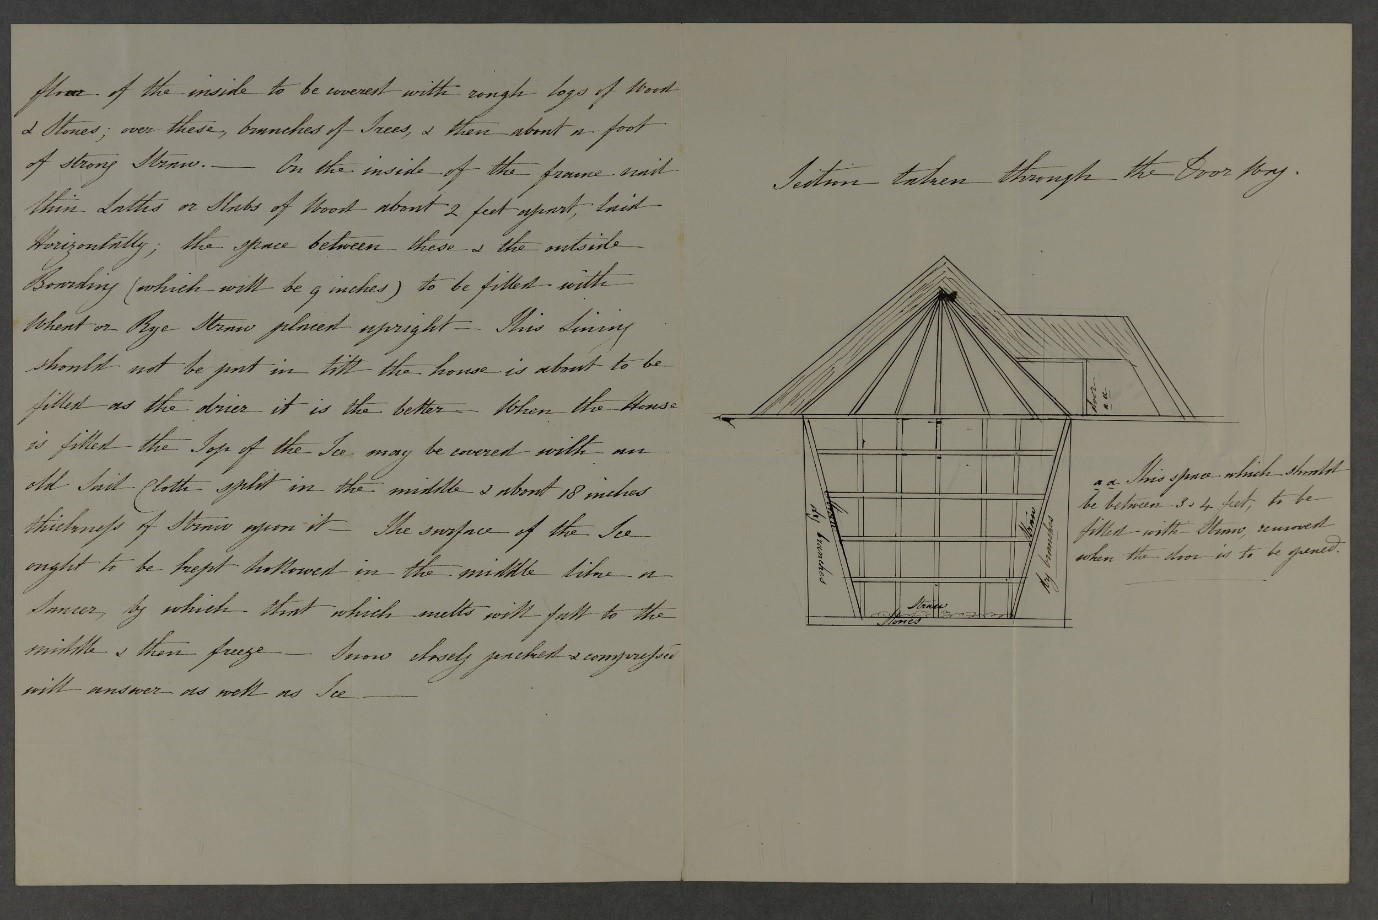 floor of the inside to be covered with rough logs of Wood
& Stones; over these, branches of Trees, & then about a foot
of strong Straw. — On the inside of the frame nail
thin Laths or Slabs of Wood about 2 feet apart, laid
Horizontally; the space between these & the outside
Boarding (which will be 9 inches) to be filled with
Wheat or Rye Straw placed upright — This Lining
should not be put in till the house is about to be
filled as the drier it is the better — When the House
is filled the Top of the Ice may be covered with an
old Sail Cloth split in the middle & about 18 inches
thickness of Straw upon it The surface of the Ice
ought to be kept hollowed in the middle like a
Saucer, by which that which melts will fall to the
middle & then freeze — Snow closely packed & compressed
will answer as well as Ice —
Section taken through the Door Way.
door
a a
a a This space which should
be between 3 & 4 feet, to be
filled with Straw, removed
when the door is to be opened.
Straw
dry branches
Straw
dry branches
Straw
Stones